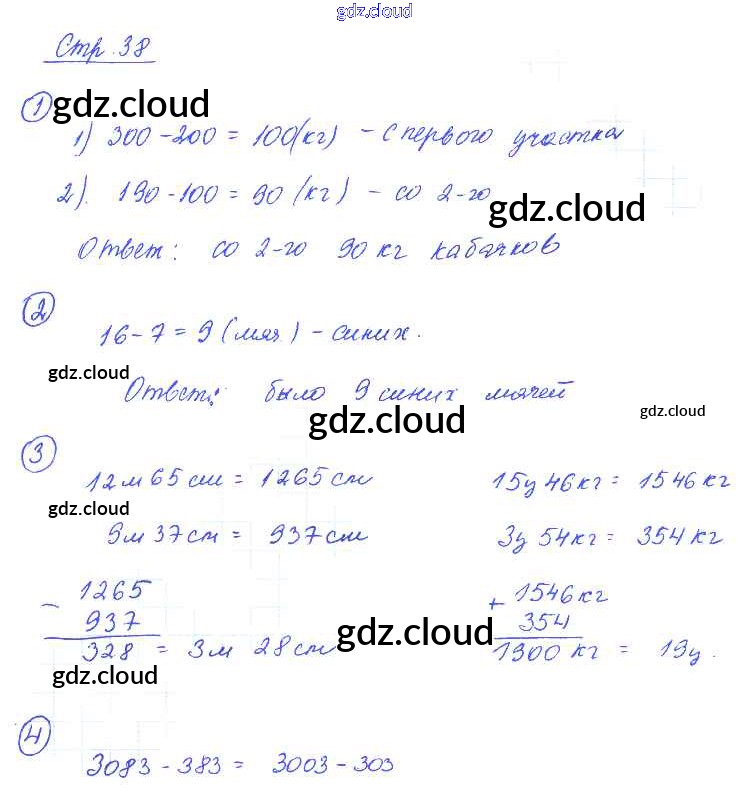 gdz.cloud
Стр. 38
① gdz.cloud
1) 300 - 200 = 100 (кг) - с первого участка
2). 190 - 100 = 90 (кг) - со 2-го
gdz.cloud
Ответ: со 2-го 90 кг кабачков
②
16 - 7 = 9 (мяч.) - синих.
gdz.cloud
Ответ: было 9 синих мячей
gdz.cloud gdz.cloud
③
12м 65 см = 1265 см 15ц 46кг = 1546 кг
gdz.cloud
9м 37см = 937 см 3ц 54кг = 354 кг
- 1265 + 1546кг
937 354
gdz.cloud
328 = 3м 28 см 1900 кг = 19ц.
gdz.cloud
④
3083 - 383 = 3003 - 303